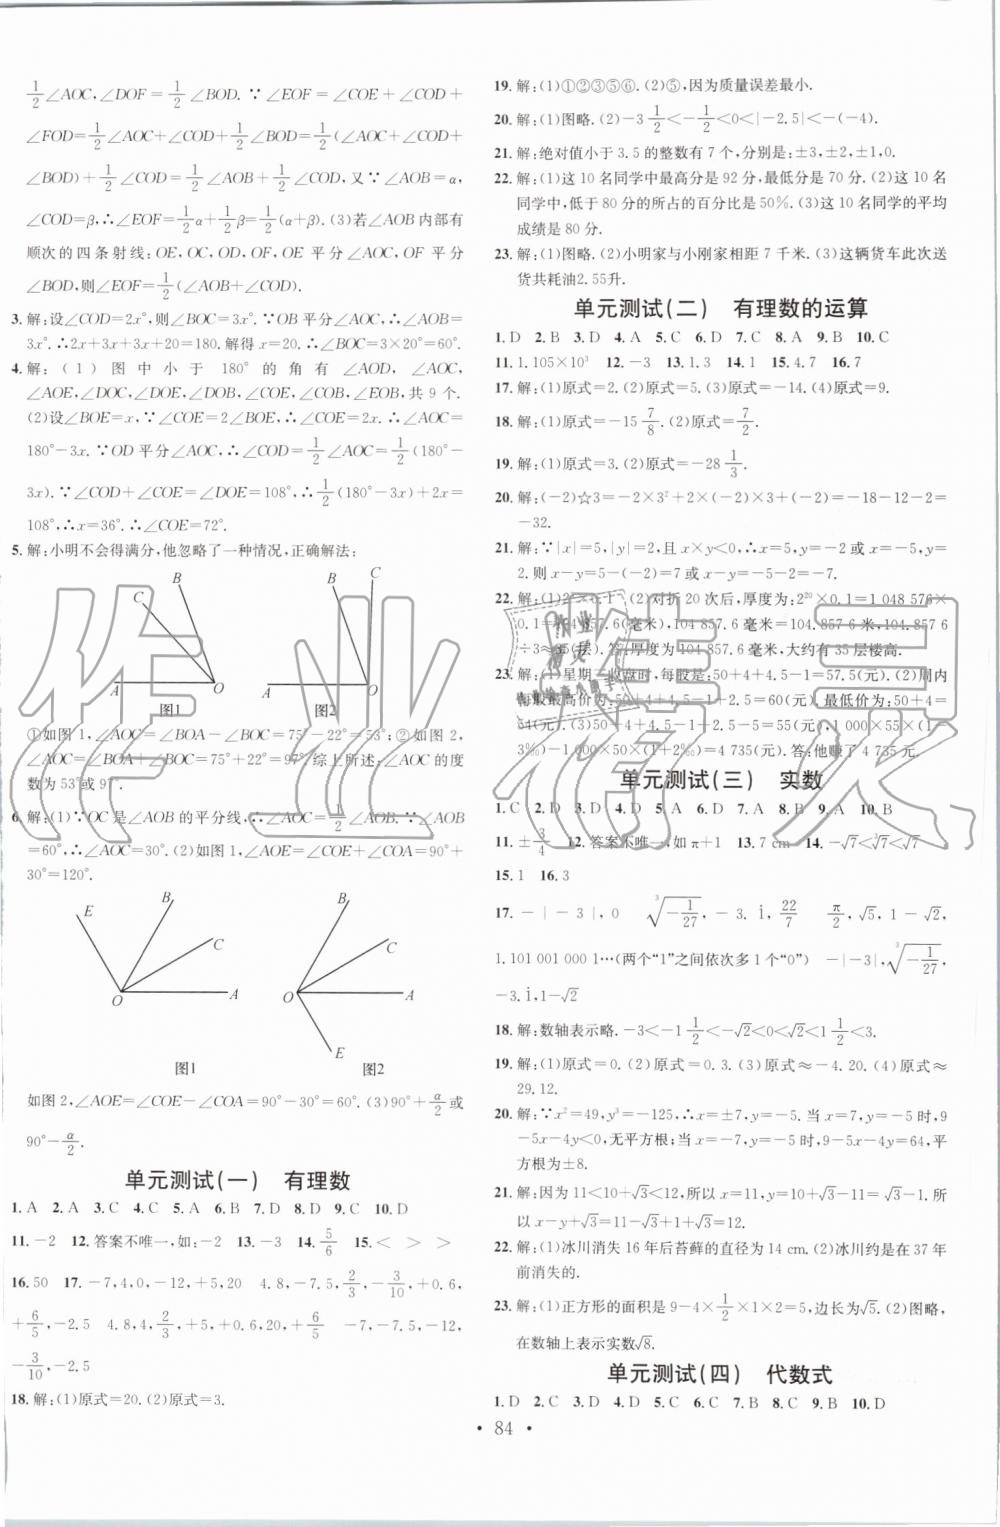 1/2∠AOC,∠DOF=1/2∠BOD.∵∠EOF=∠COE+∠COD+
∠FOD=1/2∠AOC+∠COD+1/2∠BOD=1/2(∠AOC+∠COD+
∠BOD)+1/2∠COD=1/2∠AOB+1/2∠COD,又∵∠AOB=α,
∠COD=β,∴∠EOF=1/2α+1/2β=1/2(α+β).(3)若∠AOB内部有
顺次的四条射线:OE,OC,OD,OF,OE平分∠AOC,OF平分
∠BOD,则∠EOF=1/2(∠AOB+∠COD).
3.解:设∠COD=2x°,则∠BOC=3x°.∵OB平分∠AOC,∴∠AOB=
3x°.∴2x+3x+3x+20=180.解得x=20.∴∠BOC=3×20°=60°.
4.解:(1)图中小于180°的角有∠AOD,∠AOC,
∠AOE,∠DOC,∠DOE,∠DOB,∠COE,∠COB,∠EOB,共9个.
(2)设∠BOE=x°,∵∠COE=2∠BOE,∴∠COE=2x.∴∠AOC=
180°-3x.∵OD平分∠AOC,∴∠COD=1/2∠AOC=1/2(180°-
3x).∵∠COD+∠COE=∠DOE=108°,∴1/2(180°-3x)+2x=
108°,∴x=36°.∴∠COE=72°.
5.解:小明不会得满分,他忽略了一种情况,正确解法:
C B A O
图1
C B A O
图2
①如图1,∠AOC=∠BOA-∠BOC=75°-22°=53°;②如图2,
∠AOC=∠BOA+∠BOC=75°+22°=97°.综上所述:∠AOC的度
数为53°或97°.
6.解:(1)∵OC是∠AOB的平分线,∴∠AOC=1/2∠AOB.∵∠AOB
=60°,∴∠AOC=30°.(2)如图1,∠AOE=∠COE+∠COA=90°+
30°=120°.
E B C O A
图1
B C O A E
图2
如图2,∠AOE=∠COE-∠COA=90°-30°=60°.(3)90°+α/2或
90°-α/2.
单元测试(一) 有理数
1.A 2.A 3.C 4.C 5.A 6.B 7.D 8.D 9.C 10.D
11.-2 12.答案不唯一,如:-2 13.-3 14.5/6 15.< > >
16.50 17.-7,4,0,-12,+5,20 4.8,-7.5,2/3,-3/10,+0.6,
+6/5,-2.5 4,8,4,2/3,+5,+0.6,20,+6/5 -7,-7.5,-12,
-3/10,-2.5
18.解:(1)原式=20.(2)原式=3.
19.解:(1)①②③⑤⑥.(2)⑤,因为质量误差最小.
20.解:(1)图略.(2)-3 1/2<-1/2<0<|-2.5|<-(-4).
21.解:绝对值小于3.5的整数有7个,分别是:±3,±2,±1,0.
22.解:(1)这10名同学中最高分是92分,最低分是70分.(2)这10名
同学中,低于80分的所占的百分比是50%.(3)这10名同学的平均
成绩是80分.
23.解:(1)图略.(2)小明家与小刚家相距7千米.(3)这辆货车此次送
货共耗油2.55升.
单元测试(二) 有理数的运算
1.D 2.B 3.D 4.A 5.C 6.D 7.C 8.A 9.B 10.C
11.1.105×10³ 12.-3 13.1.3 14.1 15.4.7 16.7
17.解:(1)原式=2.(2)原式=5.(3)原式=-14.(4)原式=9.
18.解:(1)原式=-15 7/8.(2)原式=7/2.
19.解:(1)原式=3.(2)原式=-28 1/3.
20.解:(-2)☆3=-2×3²+2×(-2)×3+(-2)=-18-12-2=
-32.
21.解:∵|x|=5,|y|=2,且x<y<0,∴x=-5,y=-2或x=-5,y=
2.则x-y=5-(-2)=7或x-y=-5-2=-7.
22.解:(1)2×0.1.(2)对折20次后,厚度为:2²⁰×0.1=1 048 576×
0.1=104 857.6(毫米),104 857.6毫米=104.857 6米,104.857 6
÷3≈35(层).答:厚度为104 857.6毫米,大约有35层楼高.
23.解:(1)星期三收盘时,每股是:50+4+4.5-1=57.5(元).(2)周内
每股最高价为:50+4+4.5-1-2.5+5=60(元),最低价为:50+4=
54(元).(3)50+4+4.5-1-2.5+5-5=55(元),1 000×55×(1-
3‰)-1 000×50×(1+2‰)=4 735(元).答:他赚了4 735元.
单元测试(三) 实数
1.C 2.D 3.D 4.D 5.A 6.D 7.A 8.B 9.A 10.B
11.±3/4 12.答案不唯一,如π+1 13.7 cm 14.-√7<∛7<√7
15.1 16.3
17.-|-3|,0 ∛(-1/27),-3.i,22/7 π/2,√5,1-√2,
1.101 001 000 1…(两个“1”之间依次多1个“0”) -|-3|,∛(-1/27),
-3.i,1-√2
18.解:数轴表示略.-3<-1 1/2<-√2<0<√2<1 1/2<3.
19.解:(1)原式=0.(2)原式=0.3.(3)原式≈-4.20.(4)原式≈
29.12.
20.解:∵x²=49,y³=-125,∴x=±7,y=-5.当x=7,y=-5时,9
-5x-4y<0,无平方根;当x=-7,y=-5时,9-5x-4y=64,平
方根为±8.
21.解:因为11<10+√3<12,所以x=11,y=10+√3-11=√3-1.所
以x-y+√3=11-√3+1+√3=12.
22.解:(1)冰川消失16年后苔藓的直径为14 cm.(2)冰川约是在37年
前消失的.
23.解:(1)正方形的面积是9-4×1/2×1×2=5,边长为√5.(2)图略,
在数轴上表示实数√8.
单元测试(四) 代数式
1.D 2.C 3.C 4.C 5.D 6.B 7.D 8.C 9.B 10.D
· 84 ·